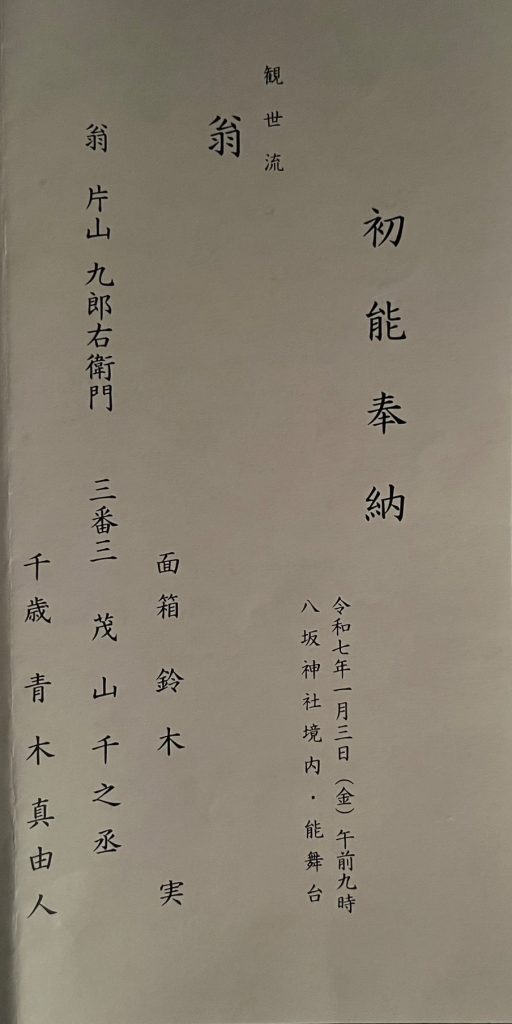 初能奉納
令和七年一月三日（金）午前九時
八坂神社境内・能舞台
観世流
翁
面箱 鈴木 実
翁 片山 九郎右衛門 三番三 茂山千之丞
千歳 青木真由人